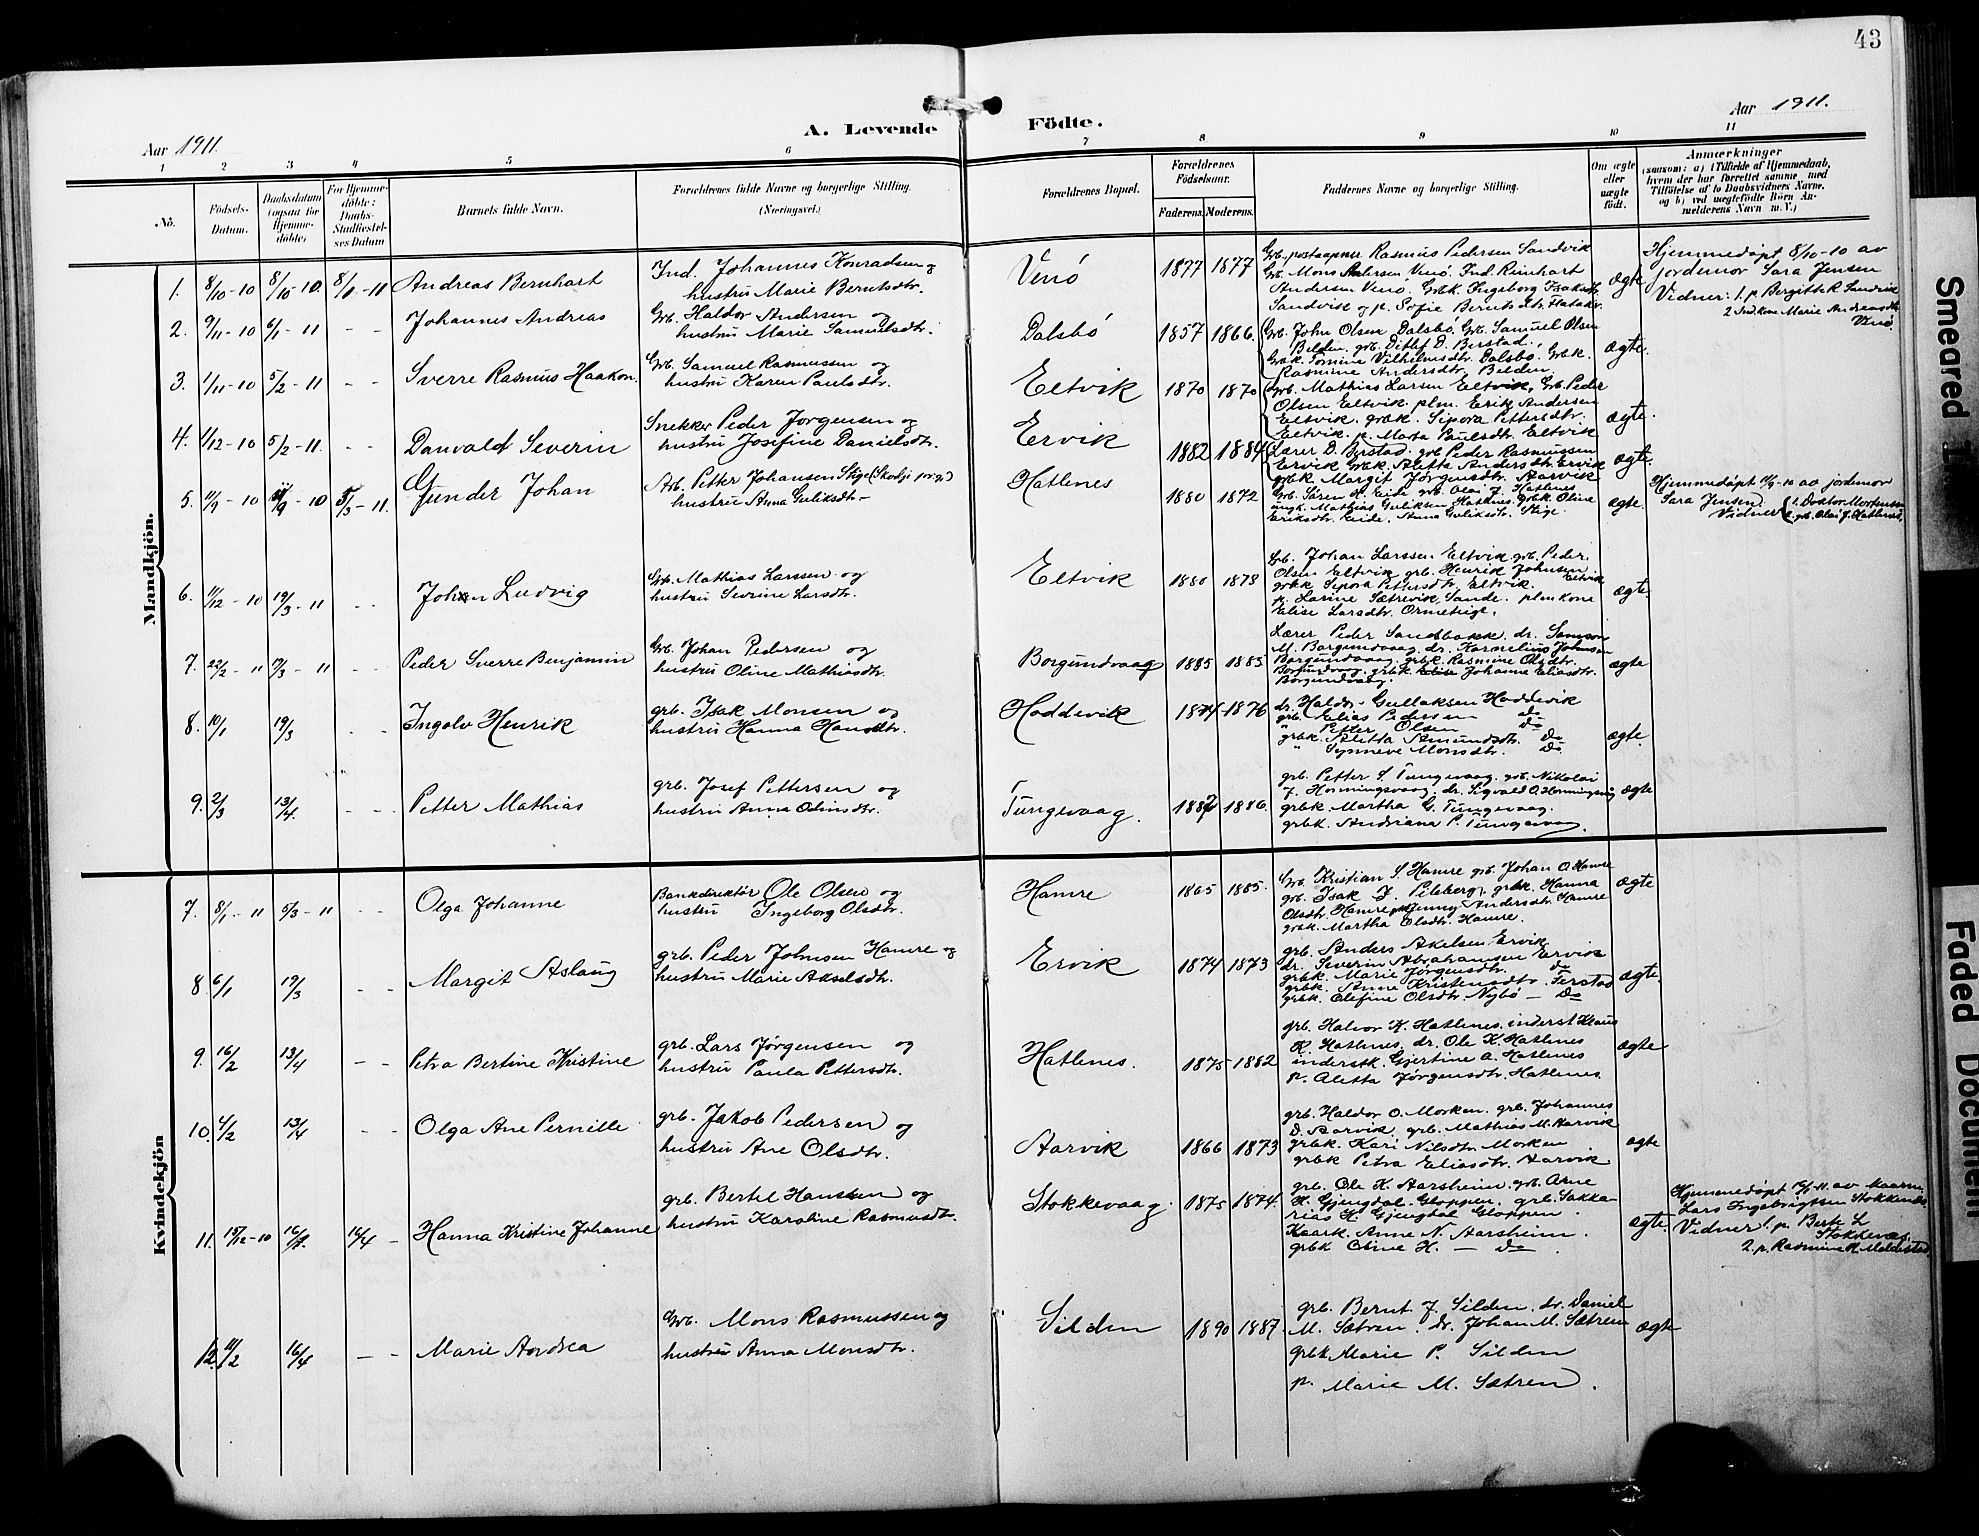 43
Aar 1911.
A. Levende Födte.
Aar 1911.
1 2 3 4 5 6 7 8 9 10 11
No.
Födsels-
Datum.
Daabsdatum
(ogsaa for
Hjemme-
döbte)
For Hjemme-
döbte:
Daabs-
Stadfæstel-
ses Datum
Barnets fulde Navn.
Forældrenes fulde Navne og borgerlige Stilling.
(Næringsvei.)
Forældrenes Bopæl.
Forældrenes
Födselsaar.
Faderens. Moderens.
Faddernes Navne og borgerlige Stilling.
Om ægte
eller
uægte
födt.
Anmærkninger
(saasom: a) i Tilfælde af Hjemmedaab,
hvem der har forrettet samme med
Tilföielse af to Daabsvidners Navne,
og b) ved uægtefödte Börn An-
melderens Navn m. V.)
Mandkjön.
1. 8/10-10 8/10-10. 8/1-11 Andreas Bernhart
Ind. Johannes Konradsen og
hustru Marie Berntsdtr.
Venö 1877 1877
Grb. postaapner Rasmus Pedersen Sandvik
Grb. Mons Andersen Venö. Ind. Reinhart
Andersen Venö. Grbk. Ingeborg Isaksdtr.
Sandvik og p. Sofie Berntsdtr.
ægte
Hjemmedöpt 8/10-10 av
jordemor Sara Jensen
Vidner: 1. p. Bergitte R. Sandvik
2 Indkone Marie Andreasdtr
Venö
2. 9/11-10 6/1-11 - - Johannes Andreas
Grb. Haldor Andersen og
hustru Marie Samuelsdtr.
Dalsbö 1857 1866.
Grb. John Olsen Dalsbö. Grb. Samuel Olsen
Belden. grb. Ditlef D. Berstad.
Grbk. Tomine Vilhelmsdtr. Dalsbö. Grbk.
Rasmine Andersdtr. Belden.
ægte.
3. 1/11-10 5/2-11 - - Sverre Rasmus Haakon.
Grb. Samuel Rasmussen og
hustru Karen Paulsdtr.
Eltvik 1870 1870
Grb. Mathias Larsen Eltvik, Grb. Peder
Olsen Eltvik. plm. Erik Andersen
Eltvik. grbk. Sipora Pettersdtr.
Eltvik p. Marta Paulsdtr. Eltvik
ægte.
4. 1/12-10 5/2-11. - - Danvald Severin
Snekker Peder Jörgensen og
hustru Josefine Danielsdtr.
Ervik 1882 1884
Lærer D. Berstad. grb Peder Rasmussen
Ervik Grbk. Aletta Andersdtr. Ervik
grbk. Margit Jörgensdtr. Aarvik
ægte.
5. 11/9-10 11/9-10 5/3-11. Gunder Johan
Arb. Petter Johansen Stige (Skodje prgj.)
hustru Anna Guliksdtr-
Hatlenes 1880 1872
Grb. Sören H. Eide grb. Olai J. Hatlenes
ungk. Mathias Guliksen Hatlenes, grbk. Oline
Eriksdtr. Eide, Anna Guliksdtr. Stige.
ægte.
Hjemmedöpt 11/9-10 av jordemor
Sara Jensen.
Vidner 1. Doktor Mortensen
2. grb. Olai J. Hatlenes.
6. 11/12-10 19/3-11 - - Johan Ludvig
Grb. Mathias Larssen og
hustru Severine Larsdtr.
Eltvik 1880 1878
Grb. Johan Larssen Eltvik grb. Peder
Olsen Eltvik grb. Henrik Johnsen
Eltvik
grbk Sipora Pettersdtr. Eltvik.
p. Larine Sætrevik, Sande. plmkone
Elise Larsdtr. Ormeteige.
ægte.
7. 22/2-11 7/3-11 - - Peder Sverre Benjamin
Grb. Johan Pedersen og
hustru Oline Mathiasdtr.
Borgundvaag 1885 1885
Lærer Peder Sandbakk. dr. Samson
M. Borgundvaag, dr. Kornelius Johnsen
Borgundvaag, grbk. Rasmine Olsdtr.
Borgundvaag, grbk. Johanne Eliasdtr.
Borgundvaag.
ægte
8. 10/1 19/3 - - Ingolv Henrik
grb. Isak Monsen og
hustru Hanna Hansdtr.
Hoddevik 1874 1876
dr. Haldor Gullaksen Hoddevik
grb. Elias Pedersen do
" Petter Olsen do
grbk. Aletta Amundsdtr. do
" Synneve Monsdtr. do.
ægte.
9. 2/3 13/4. - - Petter Mathias
grb. Josef Pettersen og
hustru Anna Odinsdtr.
Tungevaag. 1887 1886
grb. Petter S. Tungevaag. grb. Nikolai
J. Honningsvaag. dr. Sigvald O. Honningsvaag
grbk. Martha G. Tungevaag.
grbk. Andriana P. Tungevaag.
ægte
Kvindekjön
7. 8/1-11 5/3-11 - - Olga Johanne
Bankdirektör Ole Olsen og
hustru Ingeborg Olsdtr.
Hamre 1865 1885.
Grb. Kristian S. Hamre grb. Johan O. Hamre
grb. Isak J. grbk. Hanna
Olsdtr. Hamre Jenny Andersdtr. Hamre
grbk. Martha Olsdtr. Hamre.
ægte
8. 6/1 19/3 - - Margit Aslaug
grb. Peder Johnsen Hamre og
hustru Marie Akselsdtr.
Ervik 1874 1873
grb. Anders Akelsen Ervik
dr. Severin Abrahamsen Ervik
grbk. Marie Jörgensdtr. do
grbk. Anne Kristensdtr. Ferstad
grbk. Olefine Olsdtr. Nybö - Do
ægte.
9. 16/2 13/4 - - Petra Bertine Kristine
grb. Lars Jörgensen og
hustru Paula Pettersdtr.
Hatlenes. 1875 1882
grb. Halvor K. Hatlenes. inderst Klaus
K. Hatlenes, dr. Ole K. Hatlenes
inderstk. Gjertine A. Hatlenes
p. Aletta Jörgensdtr. Hatlenes
ægte
10. 4/2 13/4 - - Olga Ane Pernille
grb. Jakob Pedersen og
hustru Ane Olsdtr.
Aarvik 1866 1873
grb. Haldor O. Morken. grb. Johannes
D. Aarvik, grb. Mathias M. Aarvik
grbk. Kari Nilsdtr. Morken
grbk Petra Eliasdtr. Aarvik.
ægte
11. 15/12-10 16/4 - Hanna Kristine Johanne
grb. Bertel Hanssen og
hustru Karoline Rasmusdtr.
Stokkevaag 1875 1874.
grb. Ole H. Aarsheim. grb. Arne
H. Gjengdal Gloppen, grb. Sakka-
rias H. Gjengdal Gloppen.
Anne N. Aarsheim.
grbk Oline H. - do -
ægte
Hjemmedöpt av
Lars Ingebrigtsen Stokkenes
Vidner 1. p. Berte L
Stokkevag.
2. p. Rasmine R. Moldestad.
12. 11/2 16/4 - - Marie Andrea
Grb. Mons Rasmussen og
hustru Anna Monsdtr.
Silden 1890 1887.
grb. Bernt J. Silden. dr. Daniel
M. Sætren. dr. Johan M. Sætren
grbk Marie P. Silden
p. Marie M. Sætren.
ægte
Smeared
Faded Document